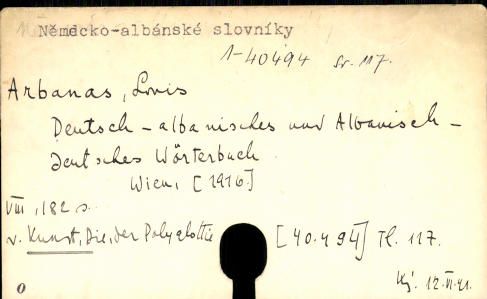 Německo-albánské slovníky
1-40494 Sv. 117.
Arbanas, Lovis
Deutsch - albanisches und Albanisch -
deutsches Wörterbuch.
Wien, [1916.]
VIII, 182 s.
v. Kunst, Die, der Polyglottie [40.494] Tl. 117.
12.VI.41.
0